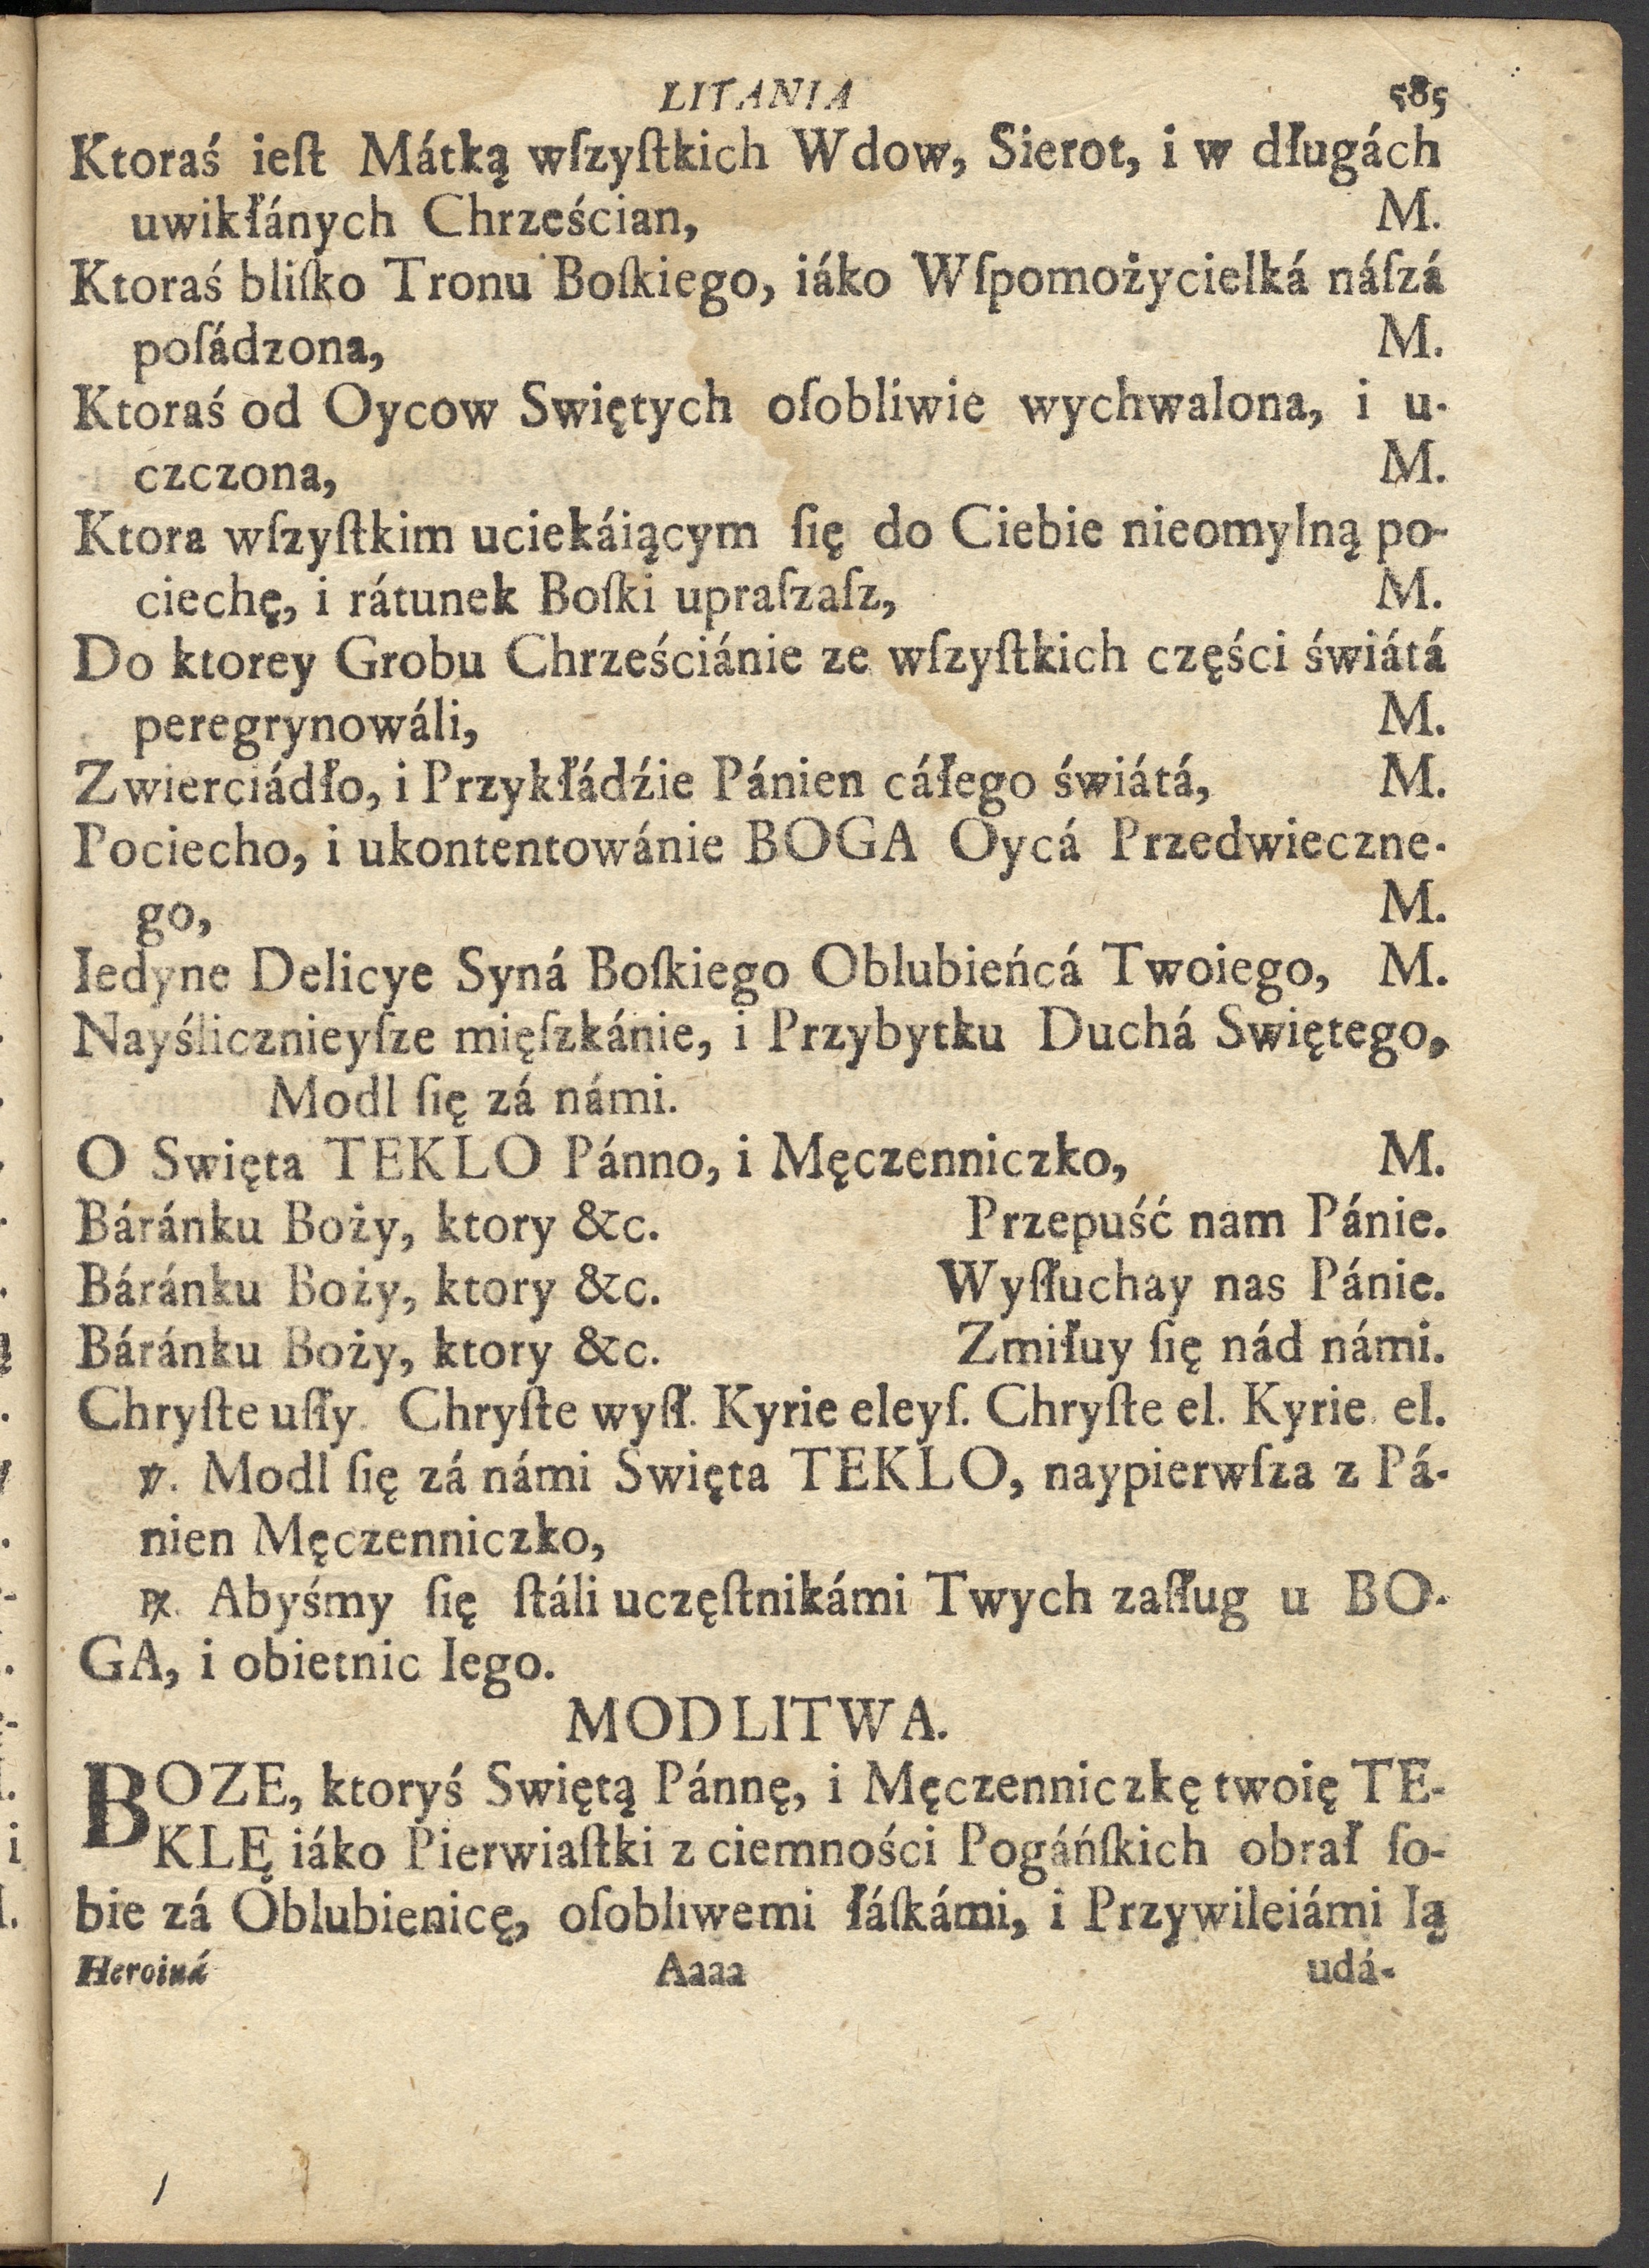 LITANIA 585
Ktoraś ieſt Mátką wſzyſtkich Wdow, Sierot, i w długách
uwikłánych Chrześcian, M.
Ktoraś bliſko Tronu Boſkiego, iáko Wſpomożycielká náſzá
poſádzona, M.
Ktoraś od Oycow Swiętych oſobliwie wychwalona, i u-
czczona, M.
Ktora wſzyſtkim uciekáiącym ſię do Ciebie nieomylną po-
ciechę, i rátunek Boſki upraſzaſz, M.
Do ktorey Grobu Chrześciánie ze wſzyſtkich części świátá
peregrynowáli, M.
Zwierciádło, i Przykłádźie Pánien cáłego świátá, M.
Pociecho, i ukontentowánie BOGA Oycá Przedwieczne-
go, M.
Iedyne Delicye Syná Boſkiego Oblubieńcá Twoiego, M.
Nayślicznieyſze mięſzkánie, i Przybytku Duchá Swiętego,
Modl ſię zá námi.
O Swięta TEKLO Pánno, i Męczenniczko, M.
Báránku Boży, ktory &c. Przepuść nam Pánie.
Báránku Boży, ktory &c. Wyſłuchay nas Pánie.
Báránku Boży, ktory &c. Zmiłuy ſię nád námi.
Chryſte uſły. Chryſte wyſł. Kyrie eleyſ. Chryſte el. Kyrie el.
℣. Modl ſię zá námi Swięta TEKLO, naypierwſza z Pá-
nien Męczenniczko,
℟. Abyśmy ſię ſtáli uczęſtnikámi Twych zaſług u BO-
GA, i obietnic Iego.
MODLITWA.
BOZE, ktoryś Swiętą Pánnę, i Męczenniczkę twoię TE-
KLĘ iáko Pierwiaſtki z ciemności Pogáńſkich obrał ſo-
bie zá Oblubienicę, oſobliwemi łáſkámi, i Przywileiámi Ią
Heroiná Aaaa udá-